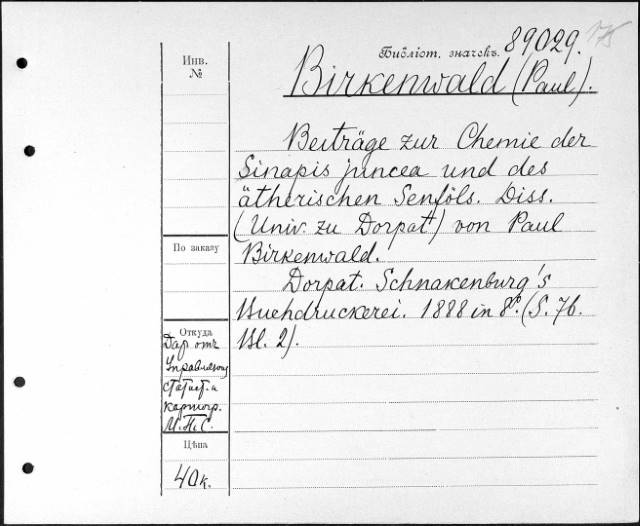 Библіот. значекъ. 89029. 75
Инв.
№
Birkenwald (Paul).
Beiträge zur Chemie der
Sinapis juncea und des
ätherischen Senföls. Diss.
(Univ. zu Dorpat) von Paul
Birkenwald.
Dorpat. Schnakenburg's
Buchdruckerei. 1888 in 8º. (S. 76.
Bl. 2).
По заказу
Откуда
Даръ отъ
статист. и
картогр.
М.П.С.
Цѣна
40 к.